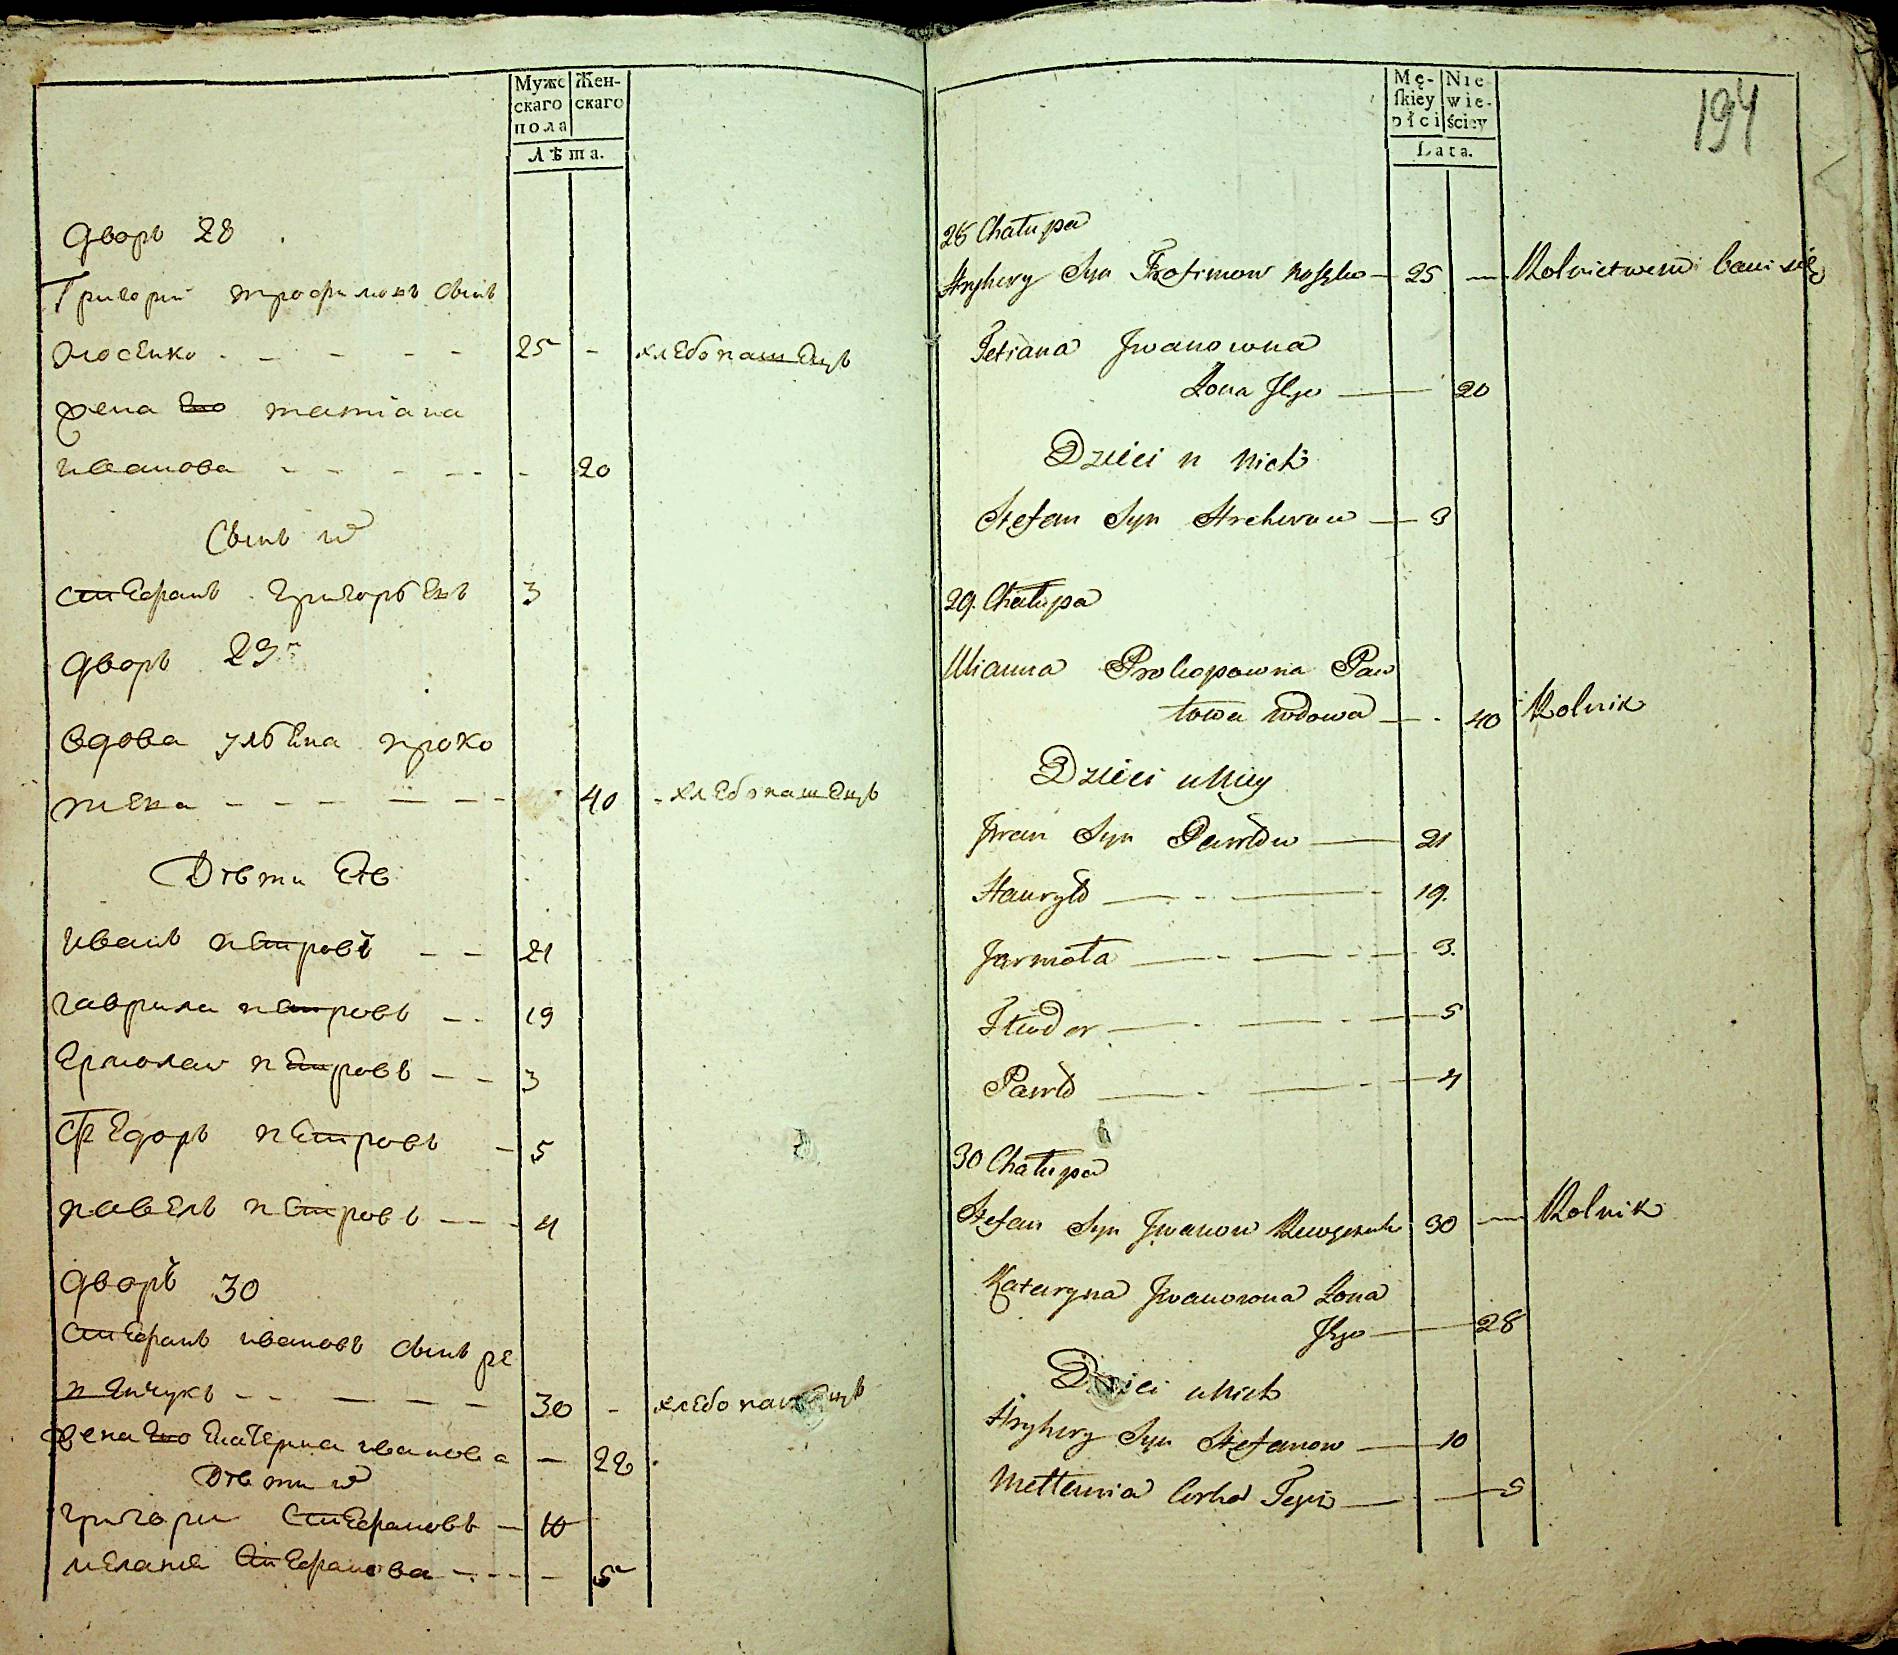 Мужс Жен-
скаго скаго
пола
Лѣта.
дворъ 28
Григорий трофимовъ сынъ
носенко - - - - - 25 - хлебопашецъ
жена Его татiана
иванова - - - - - 20
Сынъ и
стефанъ григорьевъ 3
дворъ 29
вдова ульяна проко
- - - - - 40 - хлебопашецъ
Дѣти Еѣ
иванъ петровъ - - 21
гаврила петровъ - - 19
Ермолаи петровъ - - 3
Федоръ петровъ - 5
павелъ петровъ - - - 4
дворъ 30
стефанъ ивановъ сынъ ре
пенчукъ - - - - - 30 - хлебопашецъ
жена Его Екатерина иванова - 28
Дѣти и
григори Стефановъ - 10
мелания Стефанова - - - - 5
194
Mę- Nie
skiey wie-
płci ściey
Lata.
28 Chałupa
Hryhory Syn Trofimow - 25 - Rolnictwem bawi się
Tetiana Jwanowna
Żona Jego - 20
Dzieci u Nich
Stefan Syn - 3
29. Chałupa
Ulianna Prokopowna Paw
łowa wdowa - - 40 Rolnik
Dzieci u Niey
Jwan Syn Pawłow - 21
Hauryło - - - 19.
Jarmoła - - - 3.
Fiudor - - - 5
Pawło - - - 4
30 Chałupa
Stefan Syn Jwanow 30 - Rolnik
Kateryna Jwanowna Żona
Jego - 28
Dzieci u Nich
Hryhory Syn Stefanow - 10
Corka Tegoż - - 5